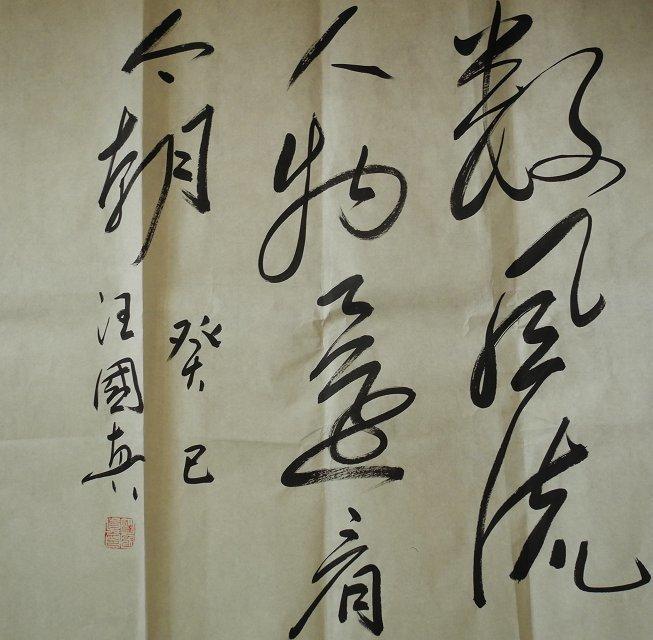 数風流
人物還看
今朝
癸巳
汪國真